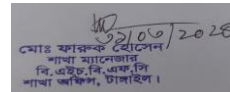 ২১/০৩/২০২৪
মোঃ ফারুক হোসেন
শাখা ম্যানেজার
বি,এইচ,বি,এফ,সি
শাখা অফিস, টাঙ্গাইল।